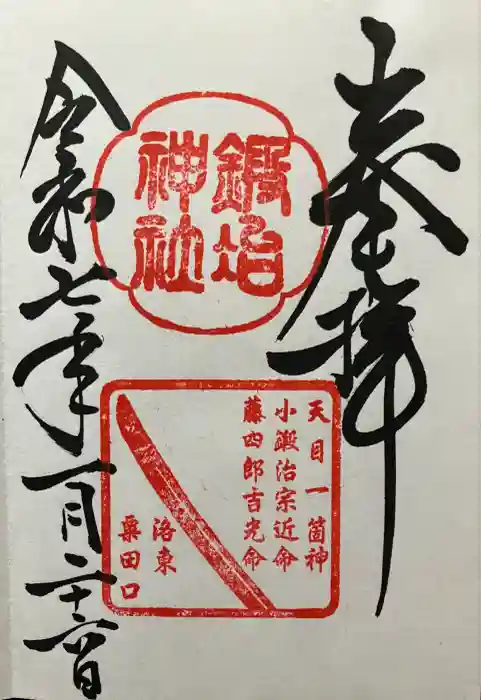 奉拝
鍛冶
神社
天目一箇神
小鍛治宗近命
藤四郎吉光命
洛東
粟田口
令和七年一月二十六日